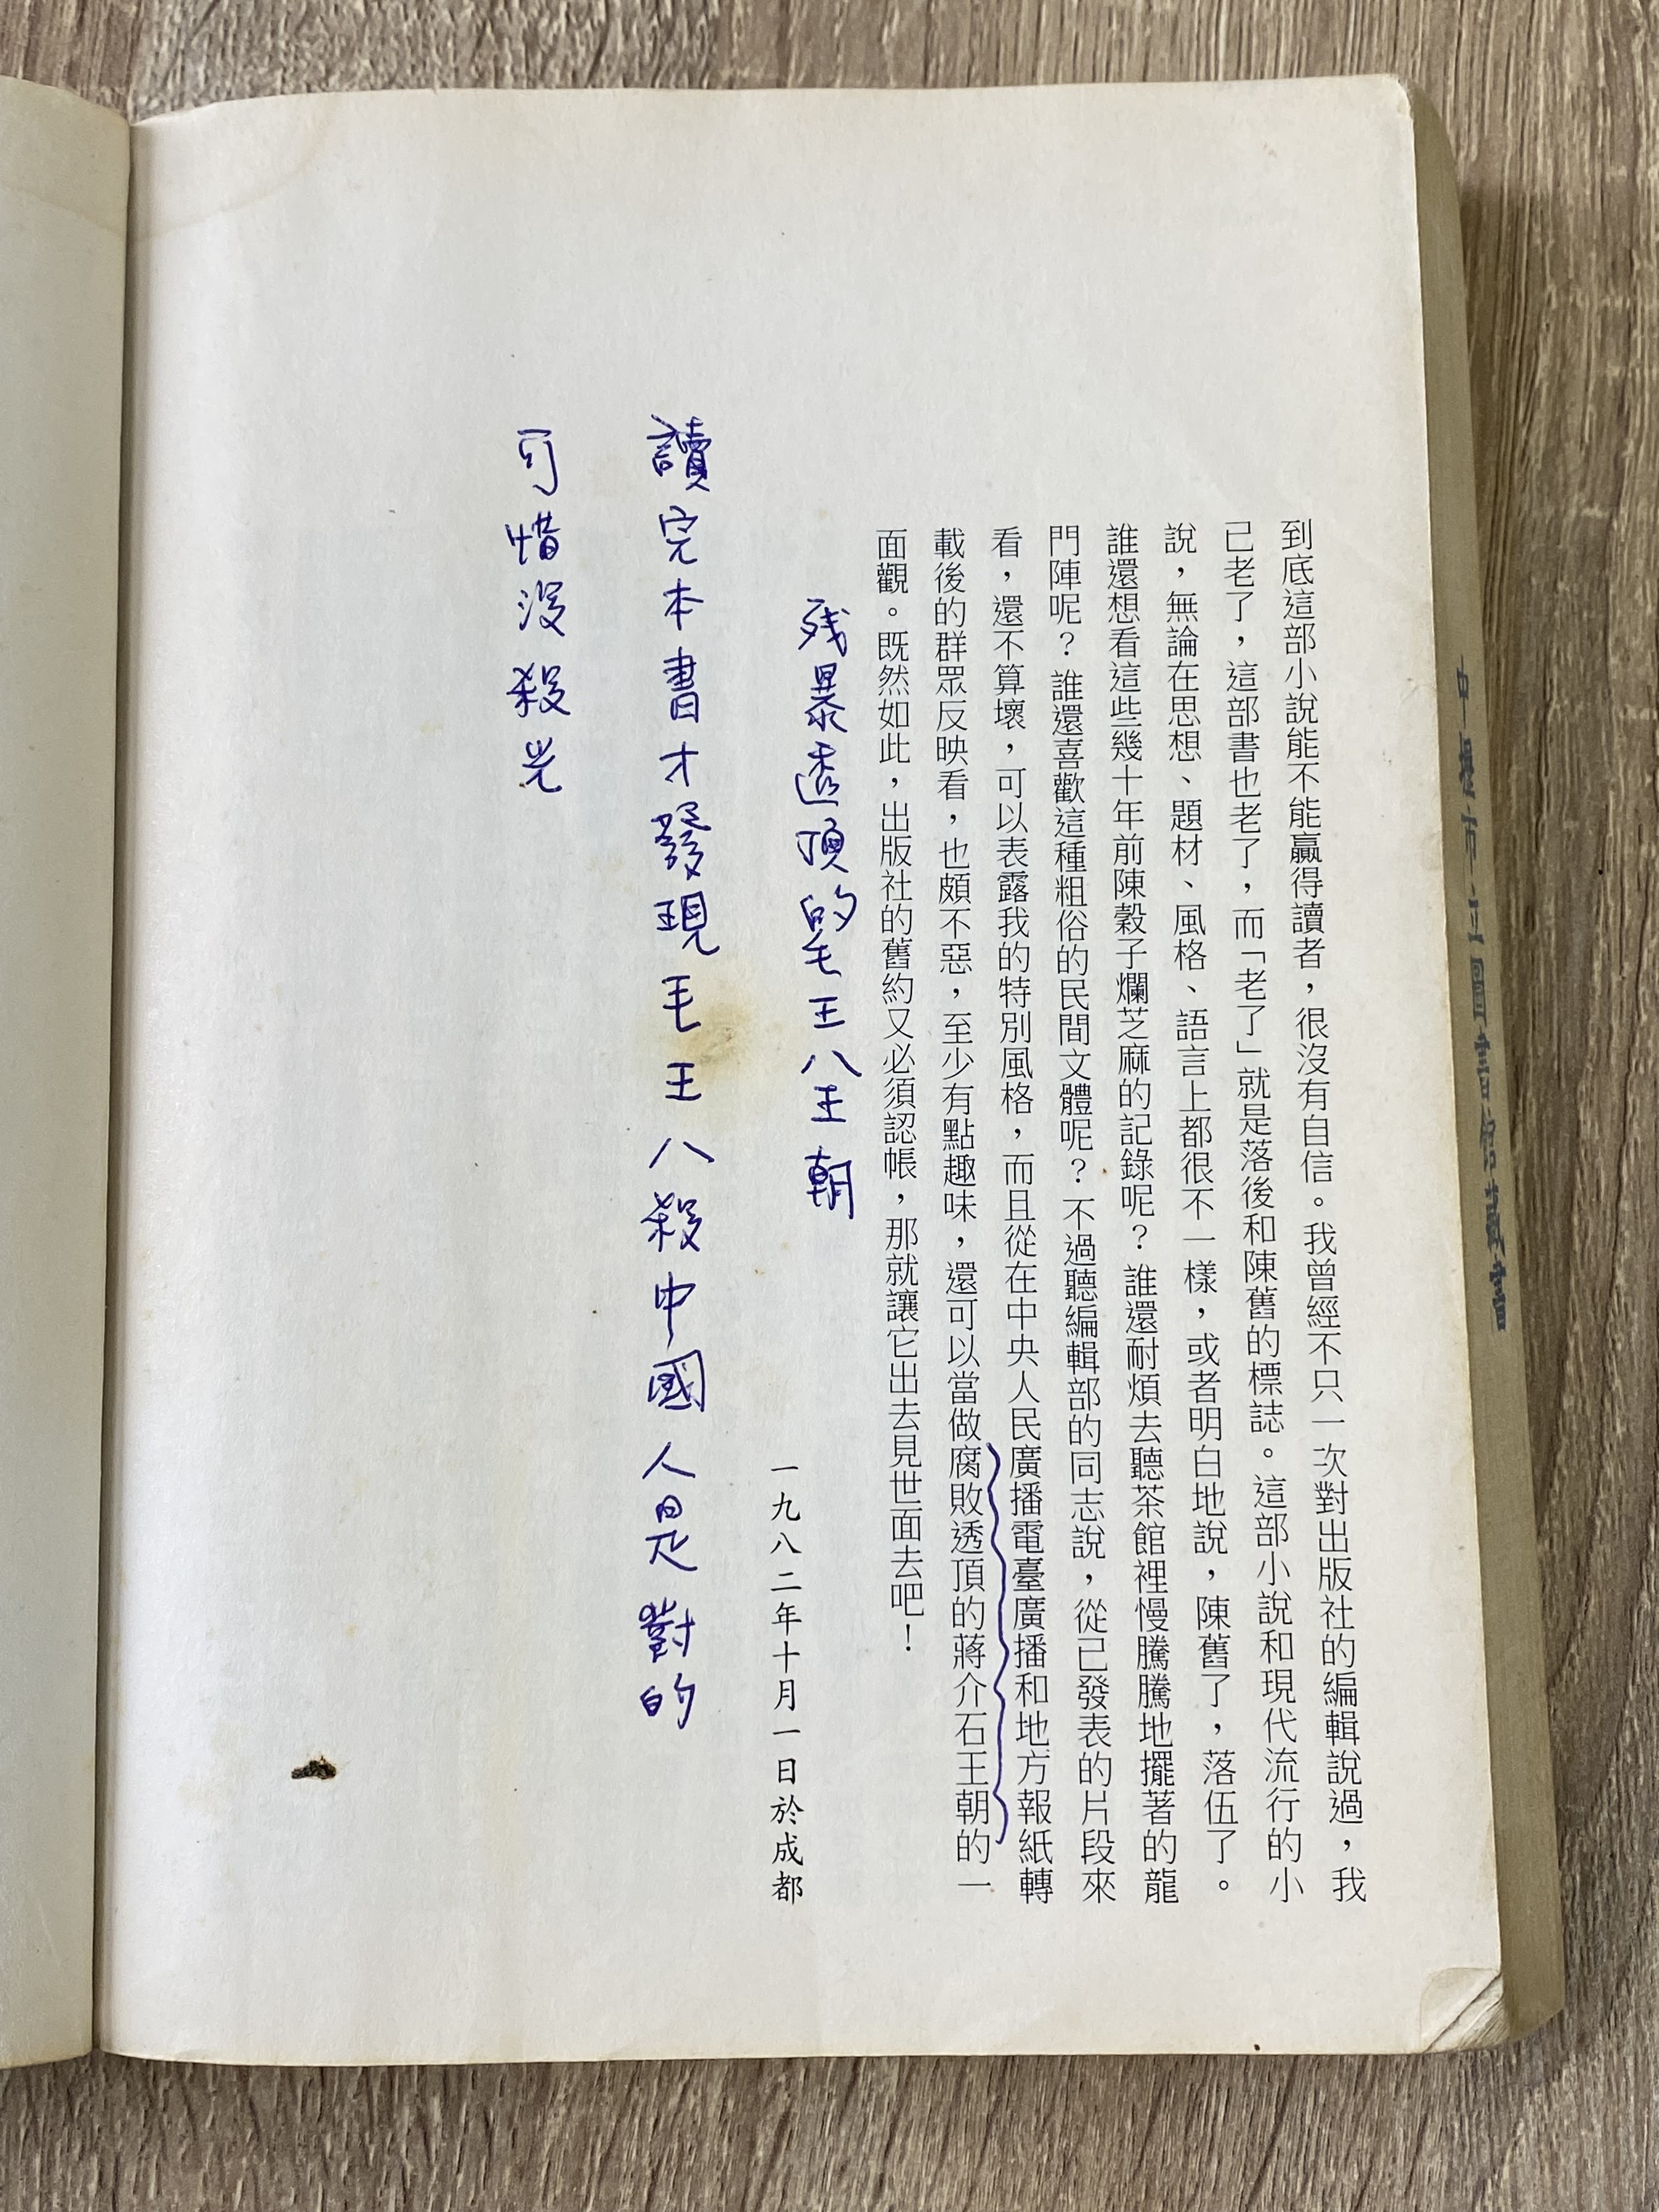 到底這部小說能不能贏得讀者，很沒有自信。我曾經不只一次對出版社的編輯說過，我
已老了，這部書也老了，而「老了」就是落後和陳舊的標誌。這部小說和現代流行的小
說，無論在思想、題材、風格、語言上都很不一樣，或者明白地說，陳舊了，落伍了。
誰還想看這些幾十年前陳穀子爛芝麻的記錄呢？誰還耐煩去聽茶館裡慢騰騰地擺著的龍
門陣呢？誰還喜歡這種粗俗的民間文體呢？不過聽編輯部的同志說，從已發表的片段來
看，還不算壞，可以表露我的特別風格，而且從在中央人民廣播電臺廣播和地方報紙轉
載後的群眾反映看，也頗不惡，至少有點趣味，還可以當做腐敗透頂的蔣介石王朝的一
面觀。既然如此，出版社的舊約又必須認帳，那就讓它出去見世面去吧！
残暴透頂的毛王八王朝
一九八二年十月一日於成都
讀完本書才發現毛王八殺中國人是對的
可惜沒殺光
中壢市立圖書館藏書